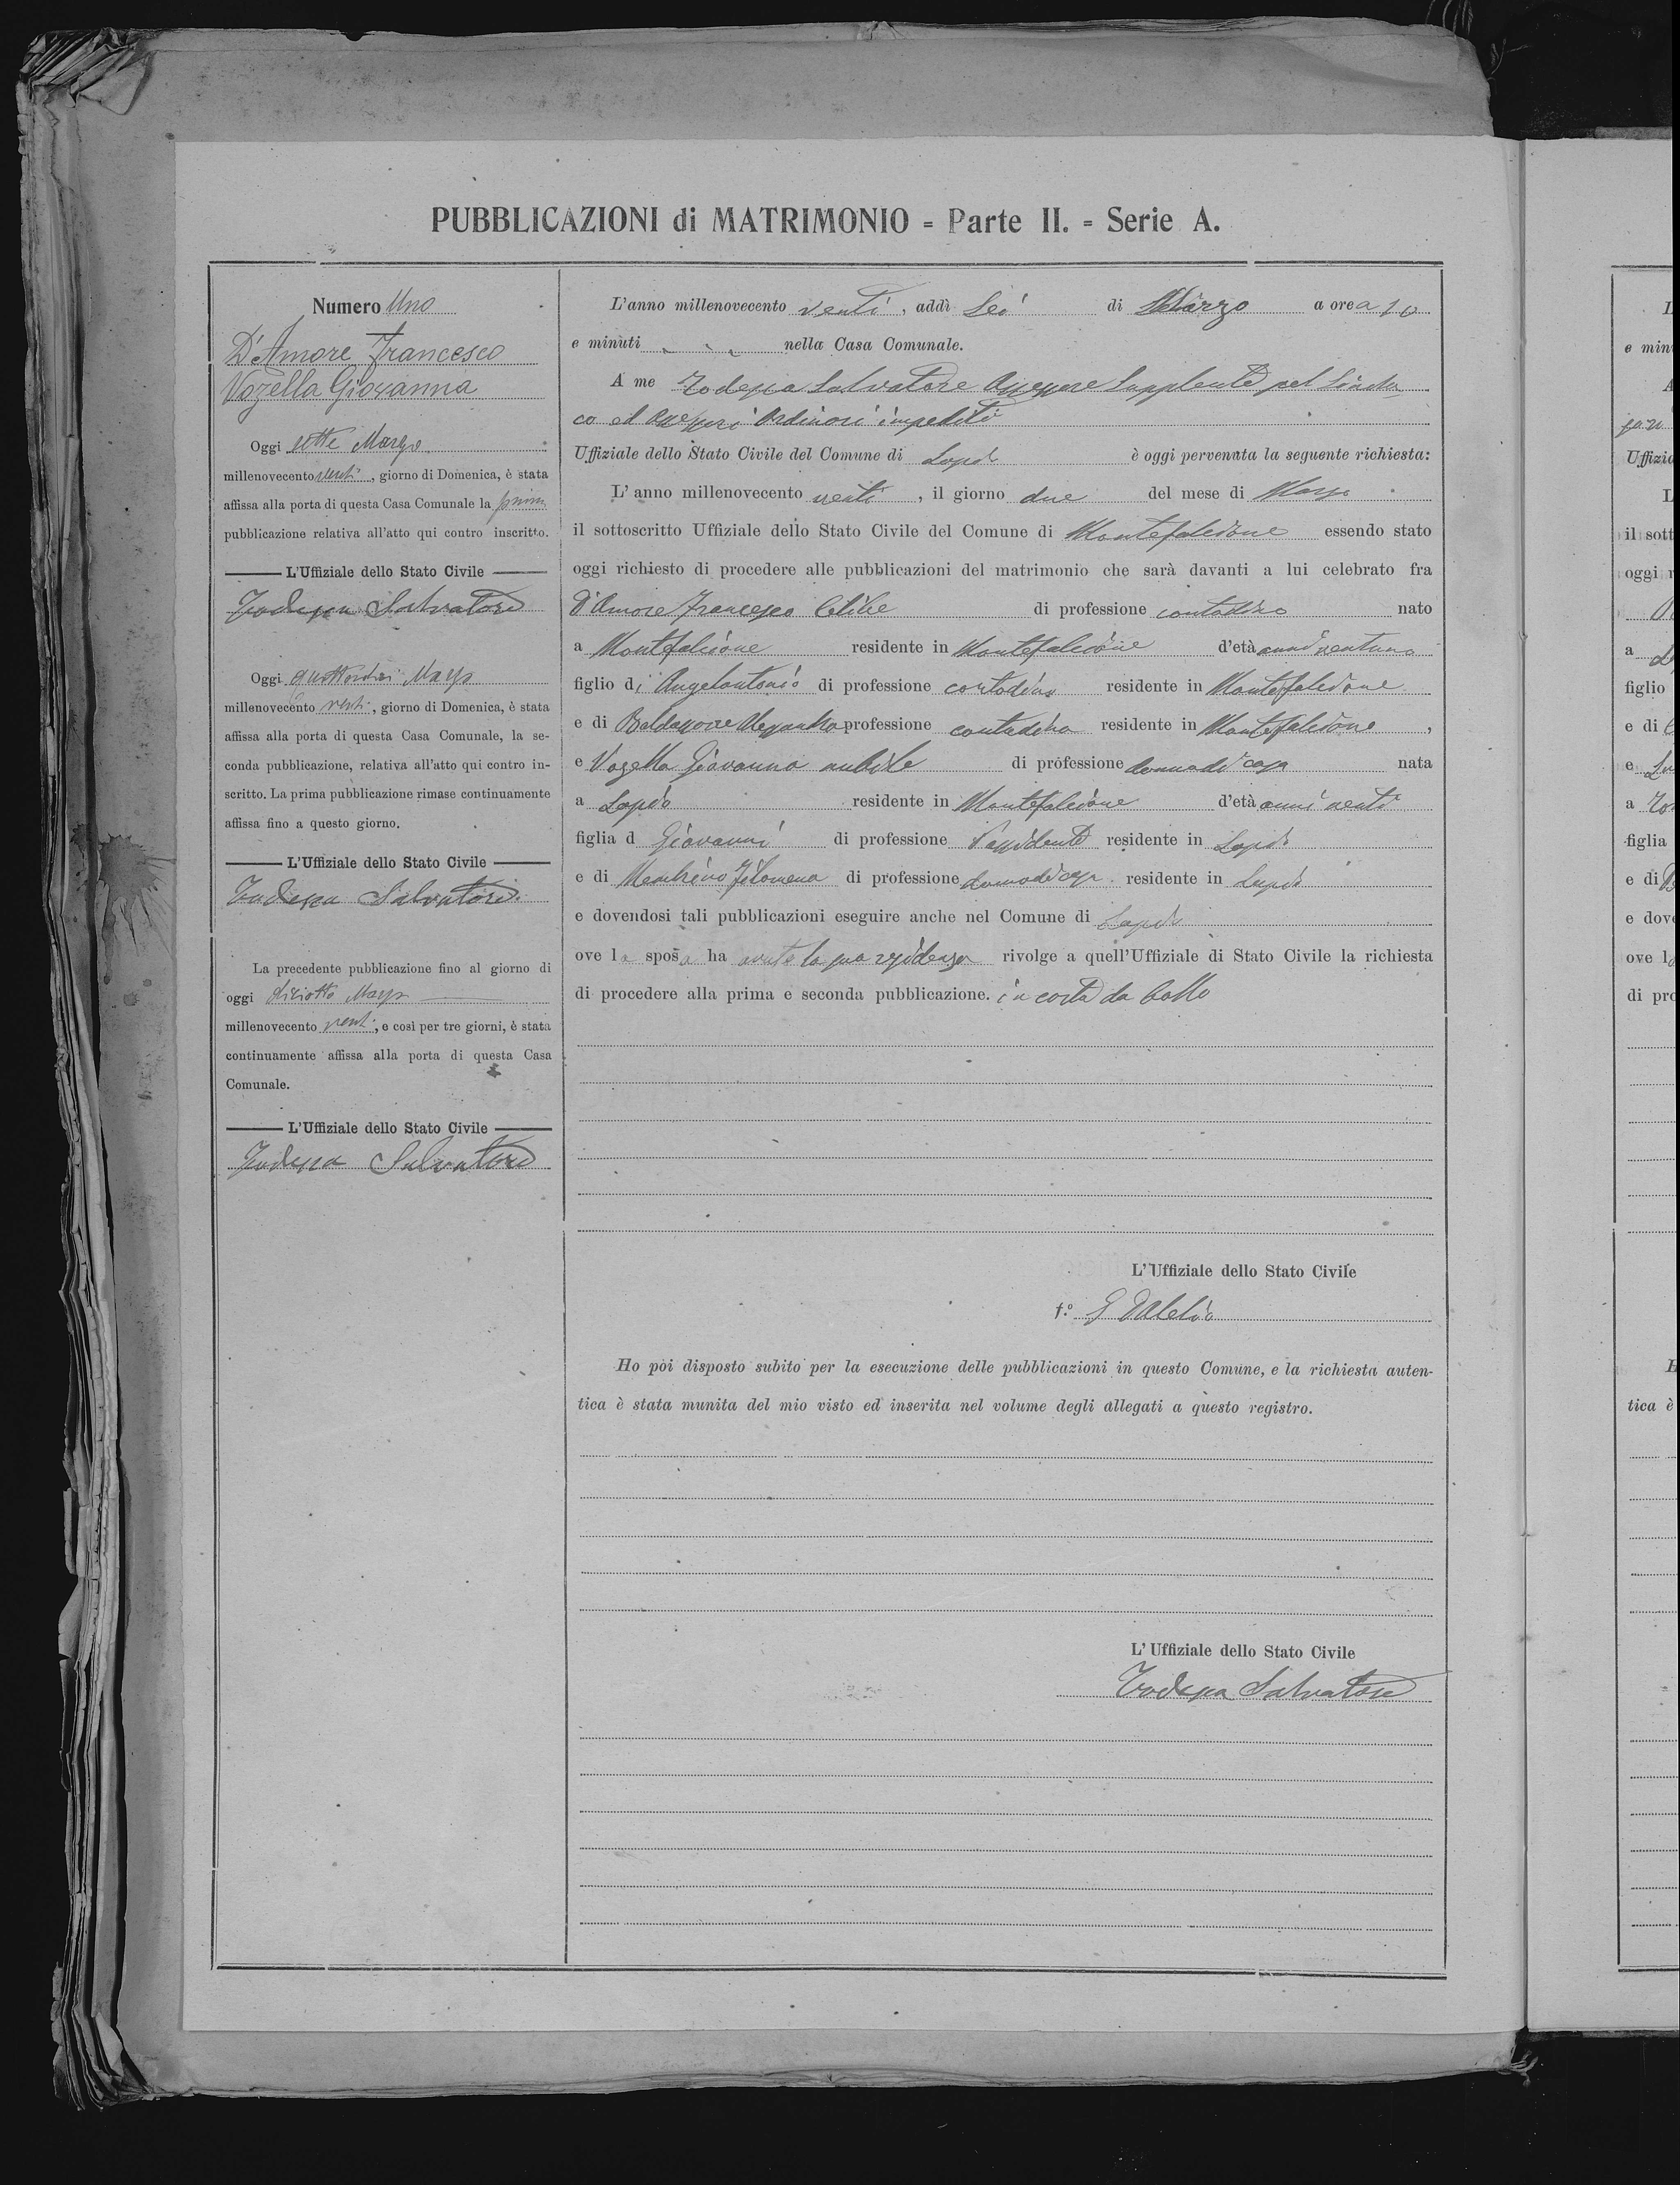 PUBBLICAZIONI di MATRIMONIO = Parte II. = Serie A.
Numero Uno
D'Amore Francesco
Vozella Giovanna
Oggi sette Marzo
millenovecento venti, giorno di Domenica, è stata
affissa alla porta di questa Casa Comunale la prima
pubblicazione relativa all'atto qui contro inscritto.
L'Uffiziale dello Stato Civile
Salvatore
Oggi quattordici Marzo
millenovecento venti, giorno di Domenica, è stata
affissa alla porta di questa Casa Comunale, la se-
conda pubblicazione, relativa all'atto qui contro in-
scritto. La prima pubblicazione rimase continuamente
affissa fino a questo giorno.
L'Uffiziale dello Stato Civile
Salvatore
La precedente pubblicazione fino al giorno di
oggi diciotto Marzo
millenovecento venti, e così per tre giorni, è stata
continuamente affissa alla porta di questa Casa
Comunale.
L'Uffiziale dello Stato Civile
Salvatore
L'anno millenovecento venti, addì sei di Marzo a ore a 10
e minuti nella Casa Comunale.
A me Salvatore Assessore Supplente pel Sinda
co ed Assessori Ordinari impediti
Uffiziale dello Stato Civile del Comune di Lapio è oggi pervenuta la seguente richiesta:
L'anno millenovecento venti, il giorno due del mese di Marzo
il sottoscritto Uffiziale dello Stato Civile del Comune di Montefalcione essendo stato
oggi richiesto di procedere alle pubblicazioni del matrimonio che sarà davanti a lui celebrato fra
D'Amore Francesco Celibe di professione contadino nato
a Montefalcione residente in Montefalcione d'età anni ventuno
figlio di Angelantonio di professione contadino residente in Montefalcione
e di Baldassarre professione contadina residente in Montefalcione,
e Vozella Giovanna nubile di professione donna di casa nata
a Lapio residente in Montefalcione d'età anni venti
figlia d Giovanni di professione Possidente residente in Lapio
e di Filomena di professione donna di casa residente in Lapio
e dovendosi tali pubblicazioni eseguire anche nel Comune di Lapio
ove la sposa ha avuto la sua residenza rivolge a quell'Uffiziale di Stato Civile la richiesta
di procedere alla prima e seconda pubblicazione. in carta da bollo
L'Uffiziale dello Stato Civile
f.º G
Ho poi disposto subito per la esecuzione delle pubblicazioni in questo Comune, e la richiesta auten-
tica è stata munita del mio visto ed inserita nel volume degli allegati a questo registro.
L'Uffiziale dello Stato Civile
Salvatore
e min
Uffizio
il sott
oggi
a
figlio
e di
e
a
figlia
e di
e dove
ove l
di pro
tica è